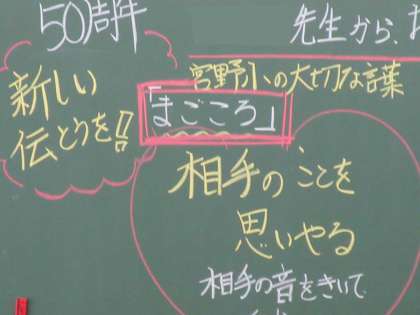 50周年
新しい
伝とうを!!
先生から、
宮野小への大切な言葉
「まごころ」
相手のことを
思いやる
相手の音をきいて